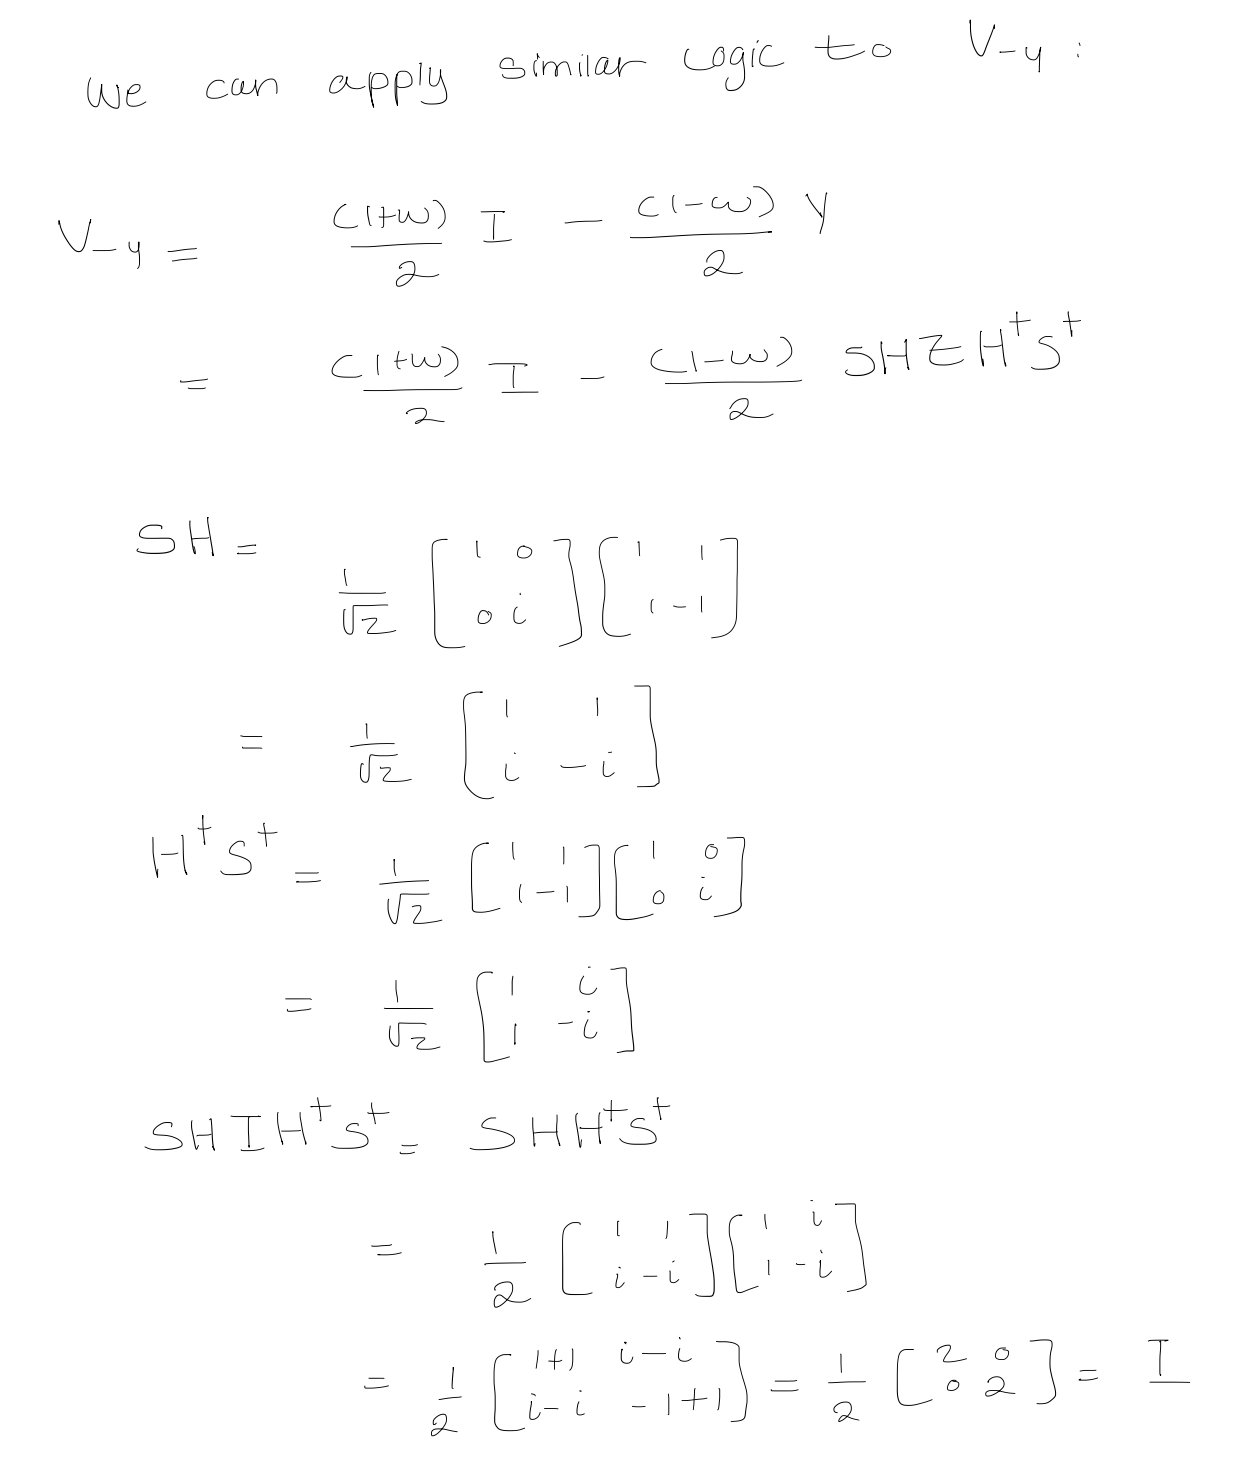 we can apply similar logic to V_{-y} :
V_{-y} = \frac{(1+ω)}{2} I - \frac{(1-ω)}{2} Y
= \frac{(1+ω)}{2} I - \frac{(1-ω)}{2} SHZH^†S^†
SH = \frac{1}{\sqrt{2}} \begin{bmatrix} 1 & 0 \\ 0 & i \end{bmatrix} \begin{bmatrix} 1 & 1 \\ 1 & -1 \end{bmatrix}
= \frac{1}{\sqrt{2}} \begin{bmatrix} 1 & 1 \\ i & -i \end{bmatrix}
H^†S^† = \frac{1}{\sqrt{2}} \begin{bmatrix} 1 & 1 \\ 1 & -1 \end{bmatrix} \begin{bmatrix} 1 & 0 \\ 0 & i \end{bmatrix}
= \frac{1}{\sqrt{2}} \begin{bmatrix} 1 & i \\ 1 & -i \end{bmatrix}
SHIH^†S^† = SHH^†S^†
= \frac{1}{2} \begin{bmatrix} 1 & 1 \\ i & -i \end{bmatrix} \begin{bmatrix} 1 & i \\ 1 & -i \end{bmatrix}
= \frac{1}{2} \begin{bmatrix} 1+1 & i-i \\ i-i & -1+1 \end{bmatrix} = \frac{1}{2} \begin{bmatrix} 2 & 0 \\ 0 & 2 \end{bmatrix} = I